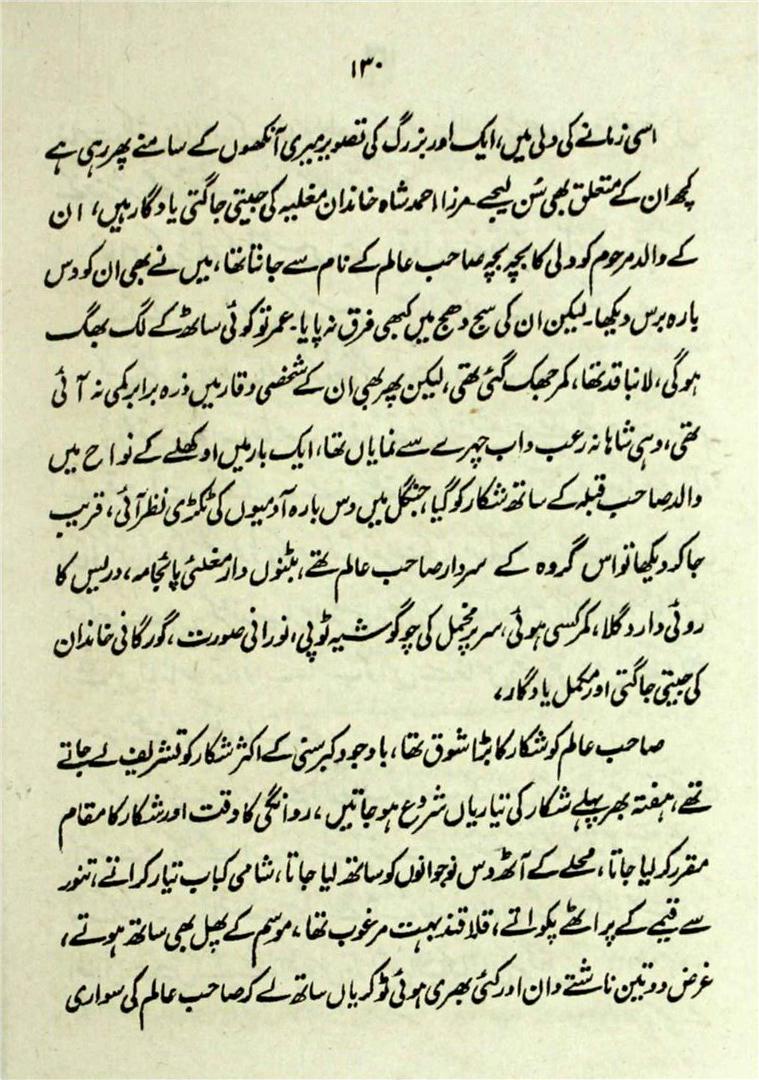 ۱۳۰
اسی زمانے کی دلی میں، ایک اور بزرگ کی تصویر میری آنکھوں کے سامنے پھر رہی ہے
کچھ ان کے متعلق بھی سُن لیجیے۔ مرزا احمد شاہ خاندان مغلیہ کی جیتی جاگتی یادگار ہیں، ان
کے والد مرحوم کو دلی کا بچہ بچہ صاحب عالم کے نام سے جانتا تھا، میں نے بھی ان کو دس
بارہ برس دیکھا۔ لیکن ان کی سج دھج میں کبھی فرق نہ پایا۔ عمر تو کوئی ساٹھ کے لگ بھگ
ہوگی، لانبا قد تھا، کمر جھک گئی تھی، لیکن پھر بھی ان کے شخصی وقار میں ذرہ برابر کمی نہ آئی
تھی، وہی شاہانہ رعب واب چہرے سے نمایاں تھا، ایک بار میں اوکھلے کے نواح میں
والد صاحب قبلہ کے ساتھ شکار کو گیا، جنگل میں دس بارہ آدمیوں کی ٹکڑی نظر آئی، قریب
جا کر دیکھا تو اس گروہ کے سردار صاحب عالم تھے، بٹنوں دار مغلئی پائجامہ، دریس کا
روئی دار دگلا، کمر کسی ہوئی، سر پر مخمل کی چوگوشیہ ٹوپی، نورانی صورت، گورگانی خاندان
کی جیتی جاگتی اور مکمل یادگار،
صاحب عالم کو شکار کا بڑا شوق تھا، باوجود کبر سنی کے اکثر شکار کو تشریف لے جاتے
تھے، ہفتہ بھر پہلے شکار کی تیاریاں شروع ہو جاتیں، روانگی کا وقت اور شکار کا مقام
مقرر کر لیا جاتا، محلے کے آٹھ دس نوجوانوں کو ساتھ لیا جاتا، شامی کباب تیار کراتے، تنور
سے قیمے کے پراٹھے پکواتے، قلاقند بہت مرغوب تھا، موسم کے پھل بھی ساتھ ہوتے،
غرض دو تین ناشتے دان اور کئی بھری ہوئی ٹوکریاں ساتھ لے کر صاحب عالم کی سواری